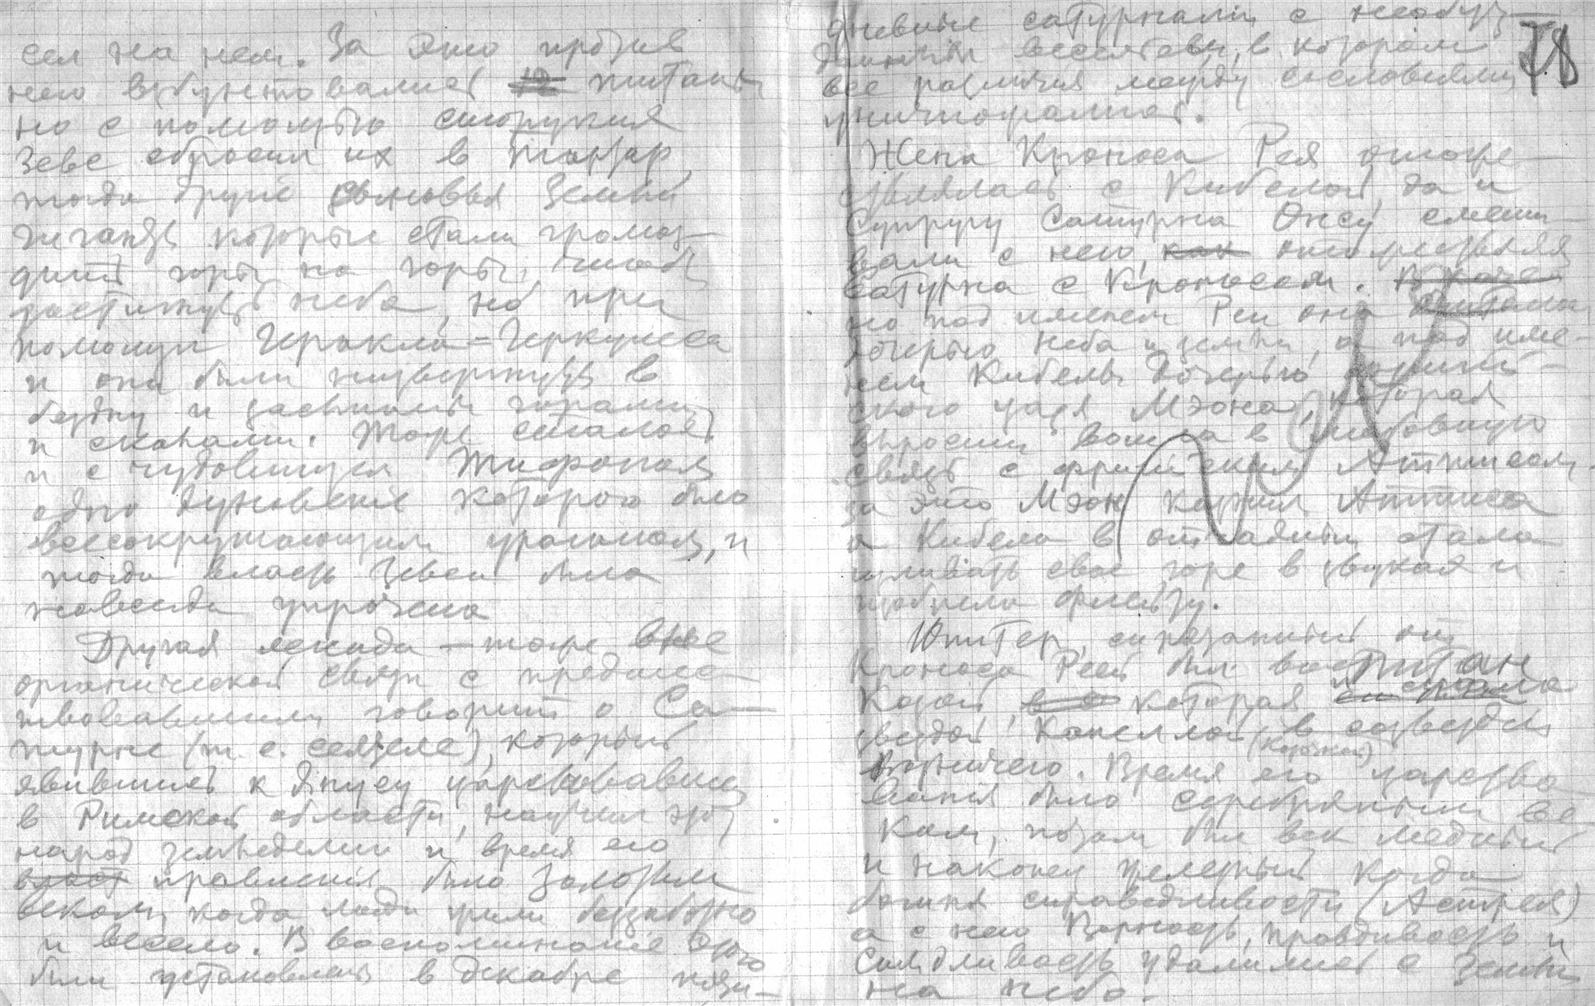 сел на нем. За это против
него взбунтовались титаны
но с помощью сторукия
Зевс сбросил их в тартар,
тогда другие сыновья Земли
гиганты которые стали громоз-
дить горы на горы, чтоб
достигнуть неба, но при
помощи Геракла-Геркулеса
и они были низвергнуты в
бездну и засыпаны горами
и скалами. Тоже сталось
и с чудовищем Тифоном
одно дуновение которого было
всесокрушающим ураганом, и
тогда власть Зевса была
навсегда упрочена
Другая легенда — тоже вне
органической связи с предше-
ствовавшими говорит о Са-
турне (т. е. сеятеле), который
явившись к Янусу царствовавшему
в Римской области, научил этот
народ земледелию и время его
власт правления было золотым
веком, когда люди жили беззаботно
и весело. В воспоминание этого
были установлены в декабре пяти-
дневные сатурналии с необуз-
данным весельем, в котором
все различия между сословиями
уничтожались.
78
Жена Кроноса Рея отоже-
ствлялась с Кибелой, да и
супругу Сатурна Опсу смеши-
вали с нею, как отожествляя
Сатурна с Кроносом.
но под именем Реи она считалась
дочерью неба и земли, а под име-
нем Кибелы дочерью фригий-
ского царя Мэона, которая
выросши вошла в любовную
связь с фригийским Аттисом
за это Мэон казнил Аттиса
а Кибела в отчаянии стала
изливать свое горе в звуках и
изобрела флейту.
Юпитер, спрятанный от
Кроноса Реей был воспитан
Козой, которая стала
звездой Капеллой (Козочкой) в созвездии
Возничего. Время его царство-
вания было серебряным ве-
ком, потом был век медный
и наконец железный когда
богиня справедливости (Астрея)
а с нею Верность, правдивость и
Стыдливость удалились с Земли
на небо.